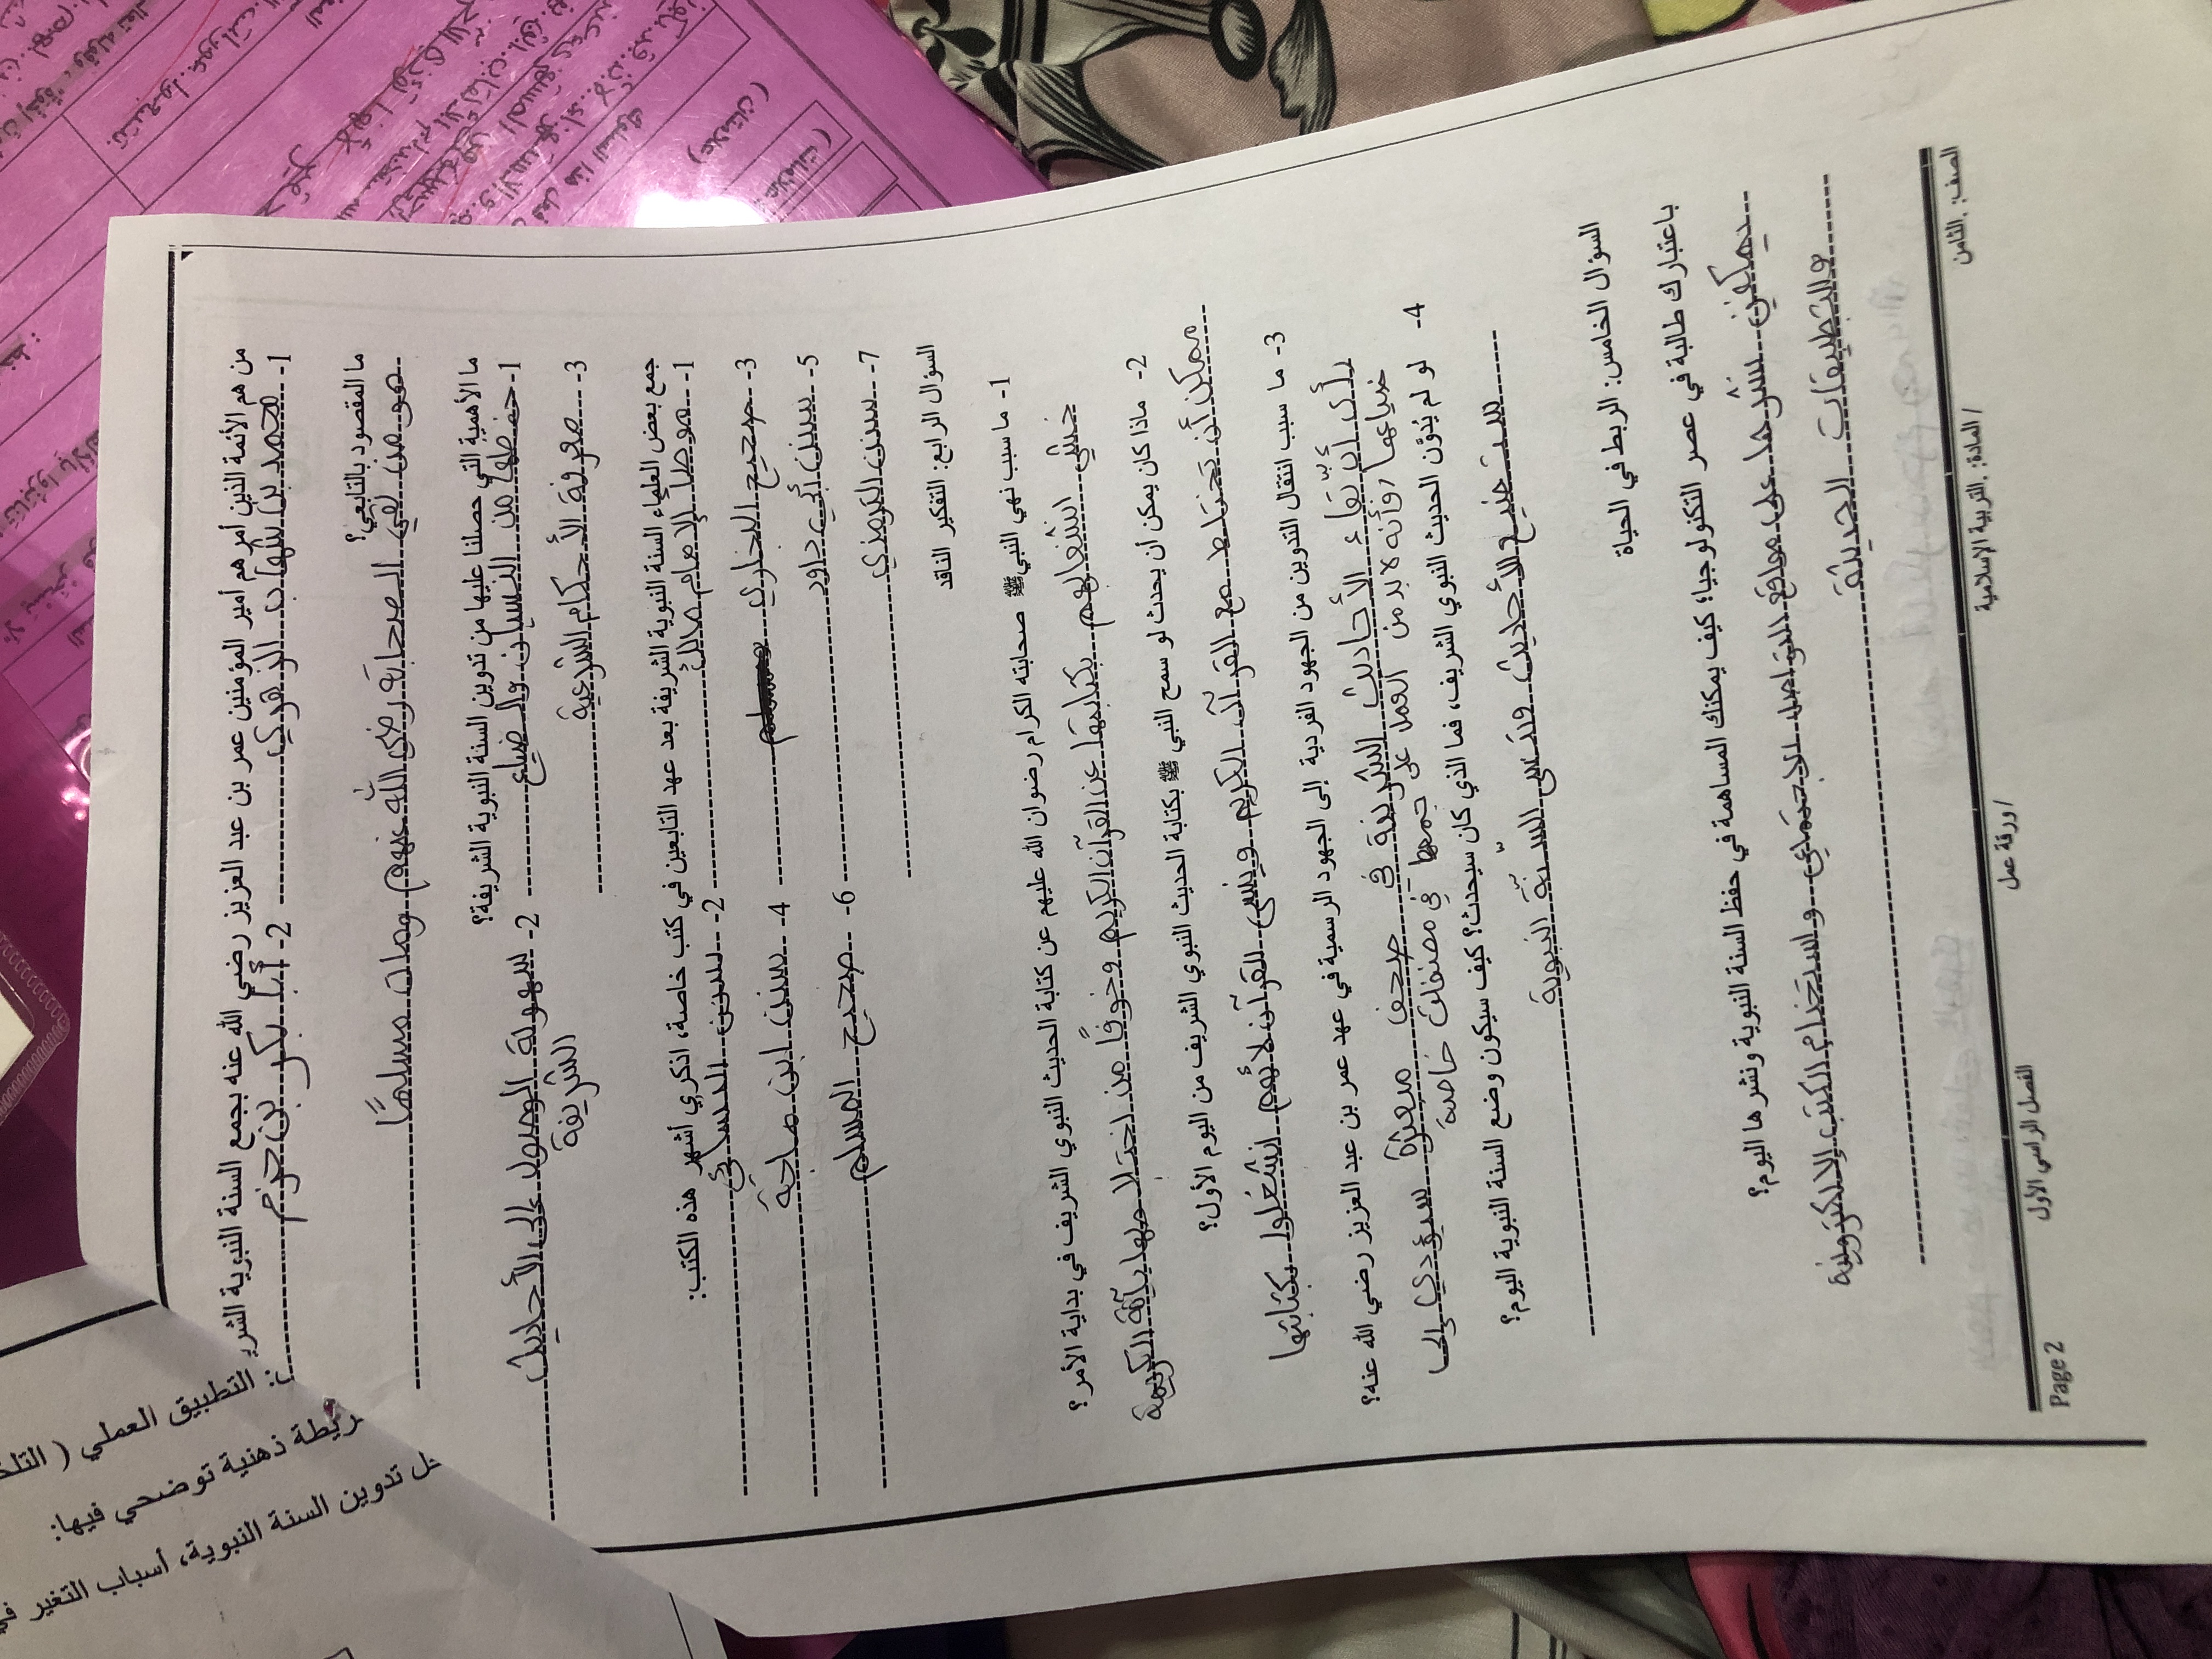 من هم الأئمة الذين أمرهم أمير المؤمنين عمر بن عبد العزيز رضي الله عنه بجمع السنة النبوية الشر
1- محمد بن شهاب الزهري 2- أبا بكر بن حزم
ما المقصود بالتابعي؟
هو من لقي الصحابة رضي الله عنهم ومات مسلمًا
ما الأهمية التي حصلنا عليها من تدوين السنة النبوية الشريفة؟
1- حفظها من النسيان والضياع 2- سهولة الوصول إلى الأحاديث
الشريفة
3- معرفة الأحكام الشرعية
جمع بعض العلماء السنة النبوية الشريفة بعد عهد التابعين في كتب خاصة، اذكري أشهر هذه الكتب:
1- موطأ الإمام مالك 2- سنن النسائي
3- صحيح البخاري 4- سنن ابن ماجة
5- سنن أبي داود 6- صحيح المسلم
7- سنن الترمذي
السؤال الرابع: التفكير الناقد
1- ما سبب نهي النبي ﷺ صحابته الكرام رضوان الله عليهم عن كتابة الحديث النبوي الشريف في بداية الأمر؟
خشي انشغالهم بكتابتها عن القرآن الكريم وخوفًا من اختلاطها بآياته الكريمة
2- ماذا كان يمكن أن يحدث لو سمح النبي ﷺ بكتابة الحديث النبوي الشريف من اليوم الأول؟
ممكن أن تختلط مع القرآن الكريم وينسى القرآن لأنهم انشغلوا بكتابتها
3- ما سبب انتقال التدوين من الجهود الفردية إلى الجهود الرسمية في عهد عمر بن عبد العزيز رضي الله عنه؟
رأى أن بقاء الأحاديث الشريفة في صحف مبعثرة سيؤدي إلى
ضياعها وأنه لا بد من العمل على جمعها في مصنفات خاصة
4- لو لم يُدوَّن الحديث النبوي الشريف، فما الذي كان سيحدث؟ كيف سيكون وضع السنة النبوية اليوم؟
ستضيع الأحاديث وتنسى السنّة النبوية
السؤال الخامس: الربط في الحياة
باعتبارك طالبة في عصر التكنولوجيا؛ كيف يمكنك المساهمة في حفظ السنة النبوية ونشرها اليوم؟
يمكنني نشرها على مواقع التواصل الاجتماعي واستخدام الكتب الإلكترونية
والتطبيقات الحديثة
الصف: .الثامن / المادة: .التربية الإسلامية / ورقة عمل الفصل الراسي الأول Page 2
التطبيق العملي ( التلخ
ريطة ذهنية توضحي فيها:
تدوين السنة النبوية، أسباب التغير